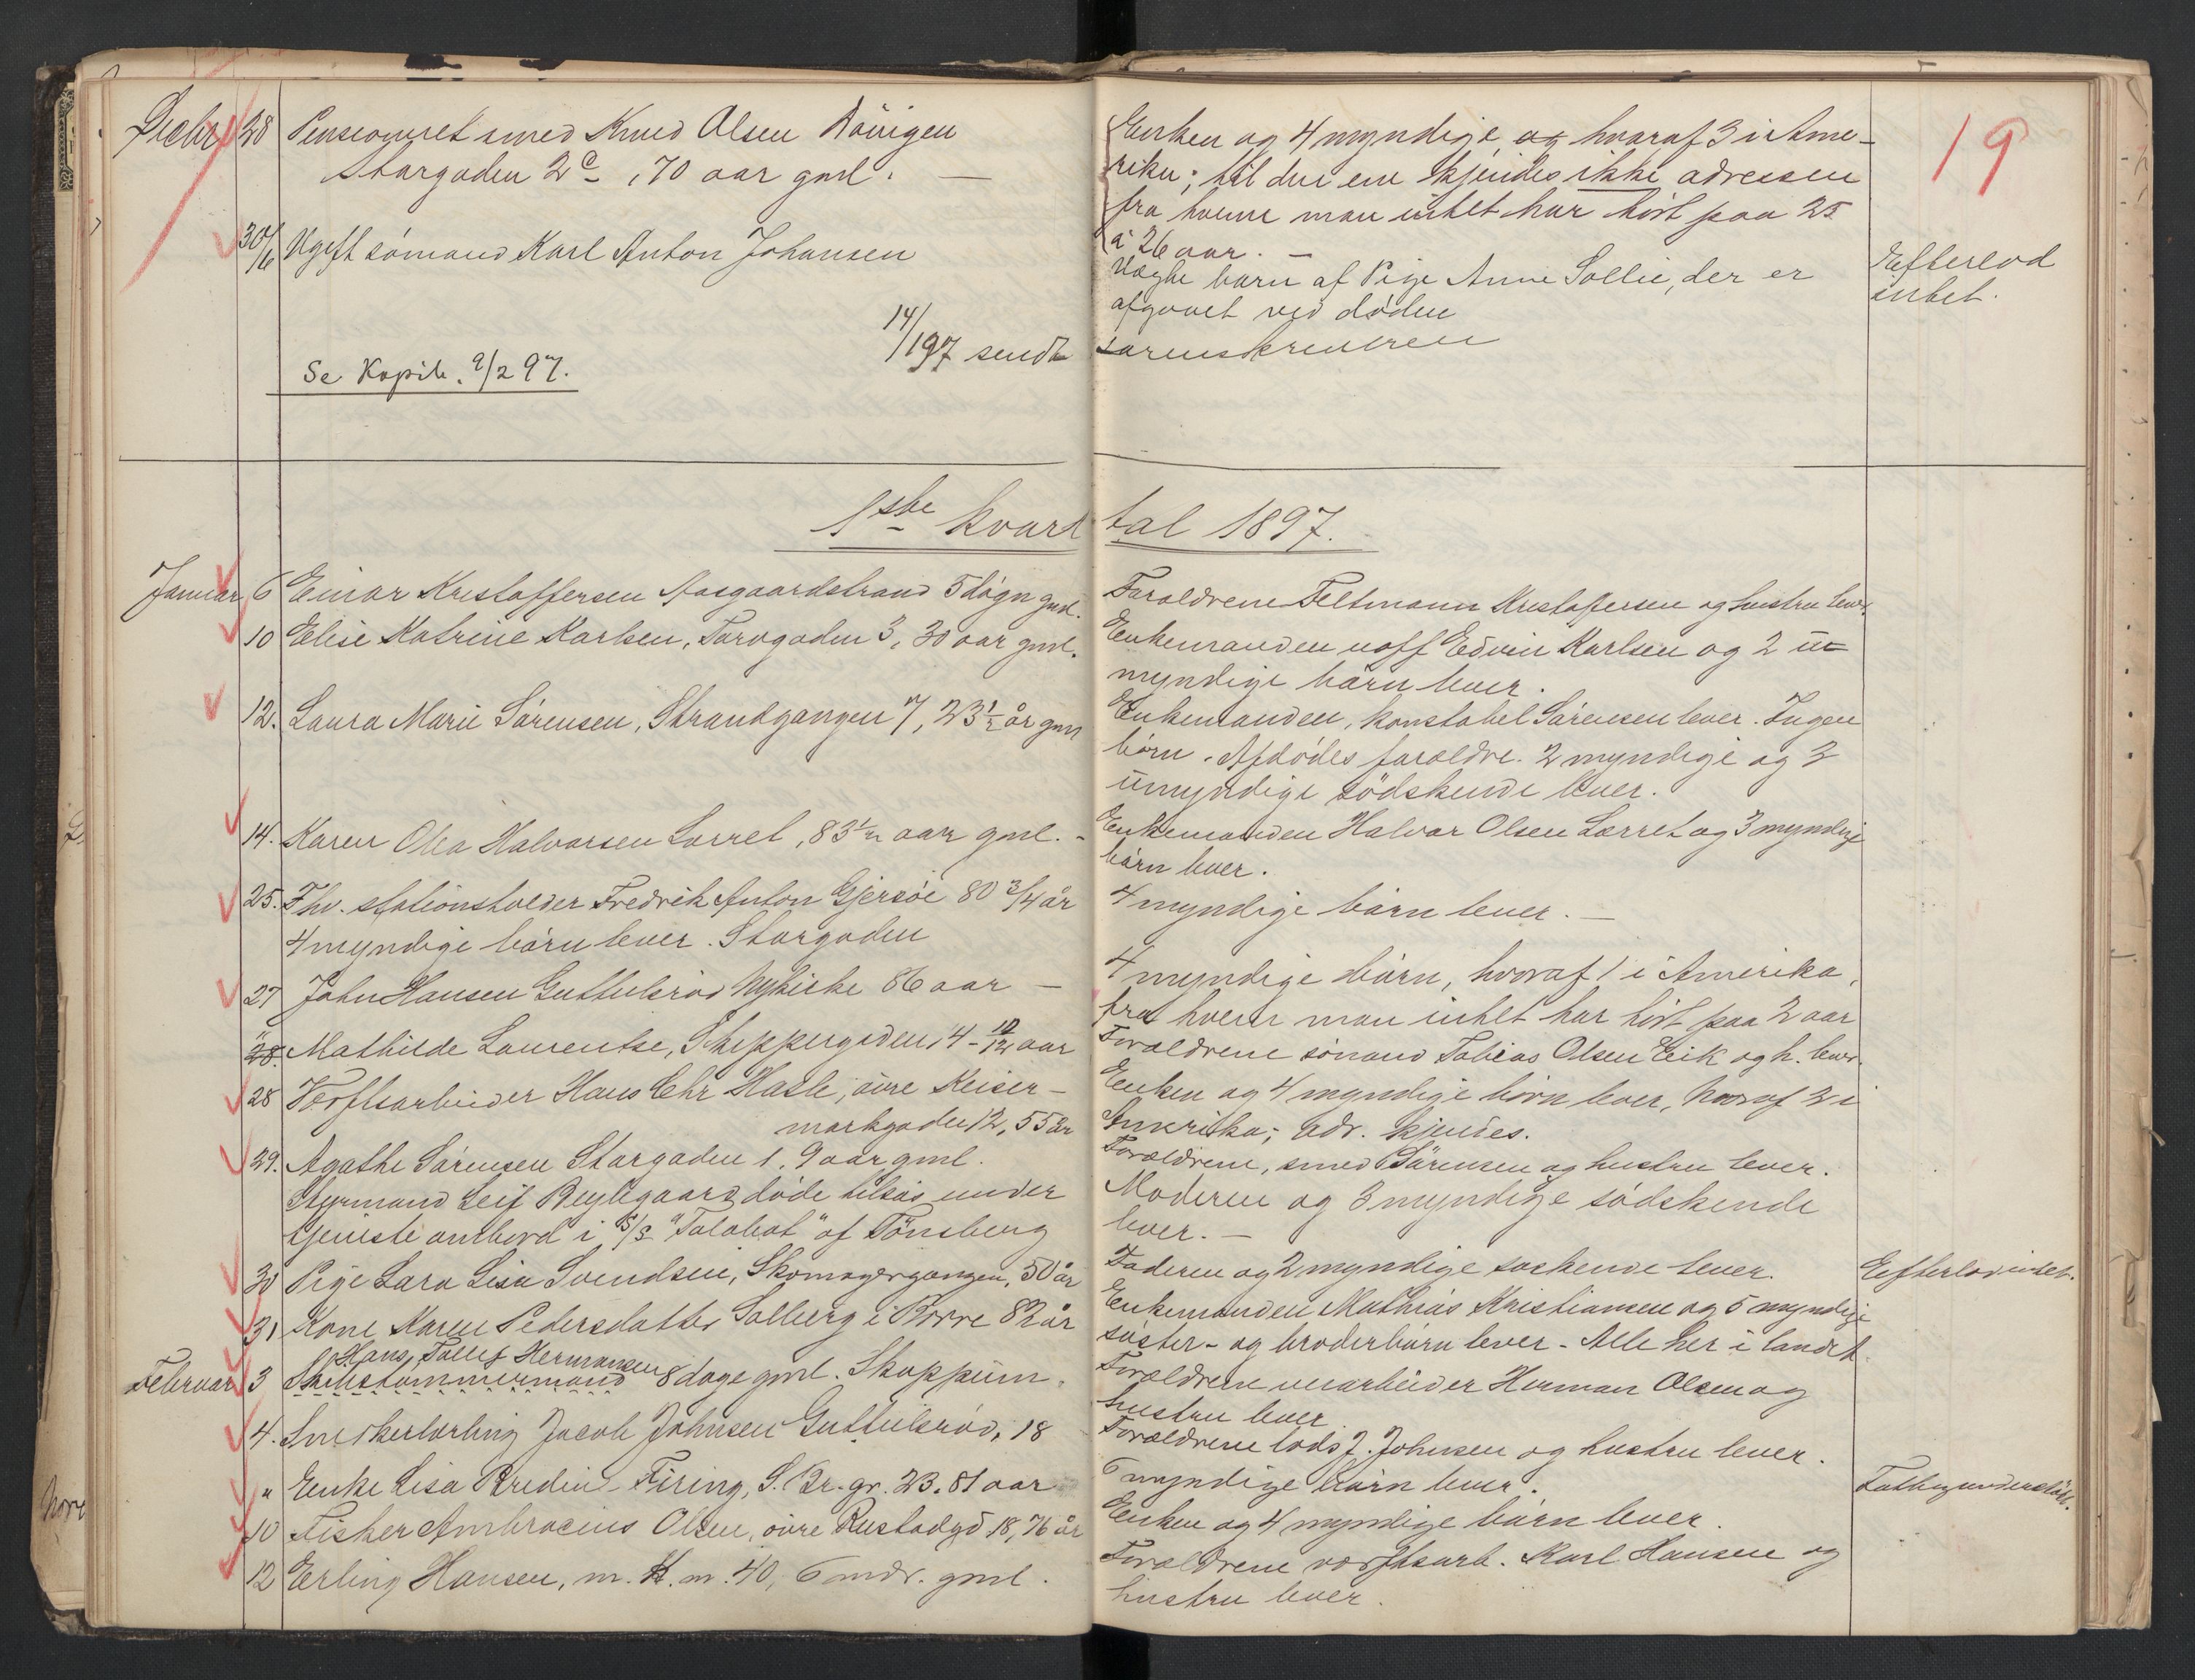 19
Decbr 28 Pensioneret smed Knud Olsen
Storgaden 2c, 70 aar gml. —
Enken og 4 myndige, og hvoraf 3 i Ame-
rika; til den ene kjendes ikke adressen
fra hvem man intet har hørt paa 25
à 26 aar. —
30/6 Ugift sømand Karl Anton Johansen
Uægte barn af Pige Anne Sollie, der er
afgaaet ved døden
Efterlod
intet.
14/1 97 sendt sorenskriveren
Se Kopib. 9/2 97.
1ste kvartal 1897.
Januar 6 Einar Kristoffersen Aasgaardstrand 5 døgn gml.
Forældrene Feltmann Kristoffersen og hustru lever.
10 Elise Katrine Karlsen, Torvgaden 3, 30 aar gml.
Enkemanden uoff Edvin Karlsen og 2 u-
myndige børn lever.
12. Laura Marie Sørensen, Strandgangen 7, 23½ år gml
Enkemanden, konstabel Sørensen lever. Ingen
børn. Afdødes forældre. 2 myndige og 3
umyndige sødskende lever.
14. Karen Olea Halvorsen Lorret, 83½ aar gml. -
Enkemanden Halvor Olsen Lørret og 3 myndige
børn lever.
25. Fhv. stationsholder Fredrik Anton Gjersøe 80 3/4 år
4 myndige børn lever. Storgaden
4 myndige børn lever. —
27 John Hansen Guttulsrød Nykirke 86 aar —
4 myndige børn, hvoraf 1 i Amerika,
fra hvem man intet har hørt paa 2 aar
" 28. Mathilde Laurentse, Skippergaden 14 - 10/12 aar
Forældrene sømand Tobias Olsen Eik og h. lever.
28 Verftsarbeider Hans Chr Hasle, øvre Keiser-
markgaden 12, 55 år
Enken og 4 myndige børn lever, hvoraf 2 i
Amerika; adr. kjendes.
29. Agathe Sørensen Storgaden 1. 9 aar gml.
Forældrene, smed Sørensen og hustru lever.
Styrmand Leif Bryhgaard døde tilsøs under
tjeneste ombord i S/S "Talabot" af Tønsberg
Moderen og 3 myndige sødskende
lever. —
30 Pige Lara Lisa Svendsen, Skomagergangen, 50 år
Faderen og 2 myndige søskende lever.
Efterlod intet.
31 Kone Karen Pedersdatter Solberg i Borre 82 år
Enkemanden Mathias Kristiansen og 5 myndige
søster- og broderbørn lever - Alle her i landet.
Hans Tollef Hermansen
Februar 3 Skibstømmermand 8 dage gml. Skoppum.
Forældrene Herman Olsen og
hustru lever.
4. Snedkerlærling Jacob Johnsen Guttulsrød, 18
Forældrene lods J. Johnsen og hustru lever.
" Enke Lisa Bredine Firing, S. Br. gr. 23. 81 aar
6 myndige børn lever.
Fattigunderstøtt.
10 Fisker Ambrocius Olsen, øvre Rustadgd 18, 76 år
Enken og 4 myndige børn lever.
12 Erling Hansen, m. K. m. 40, 6 mdr. gml.
Forældrene værftsarb. Karl Hansen og
hustru lever.